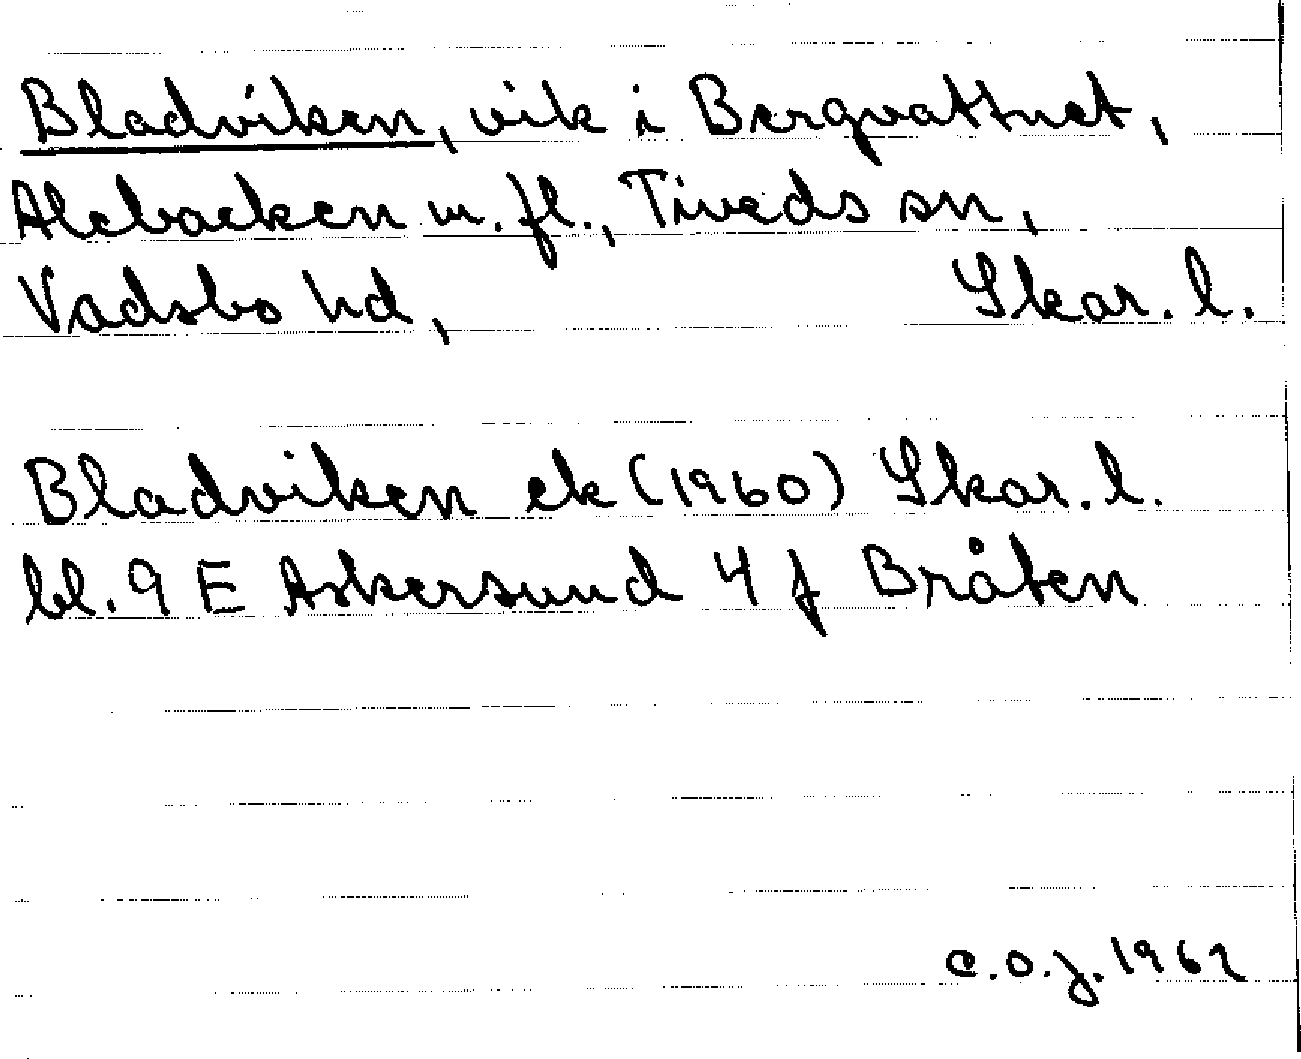 Bladviken, vik i Bergvattnet,
Alebacken m.fl., Tiveds sn,
Vadsbo hd, Skar. l.
Bladviken ek (1960) Skar. l.
bl. 9 E Askersund 4 f Bråten
C.O.J. 1962